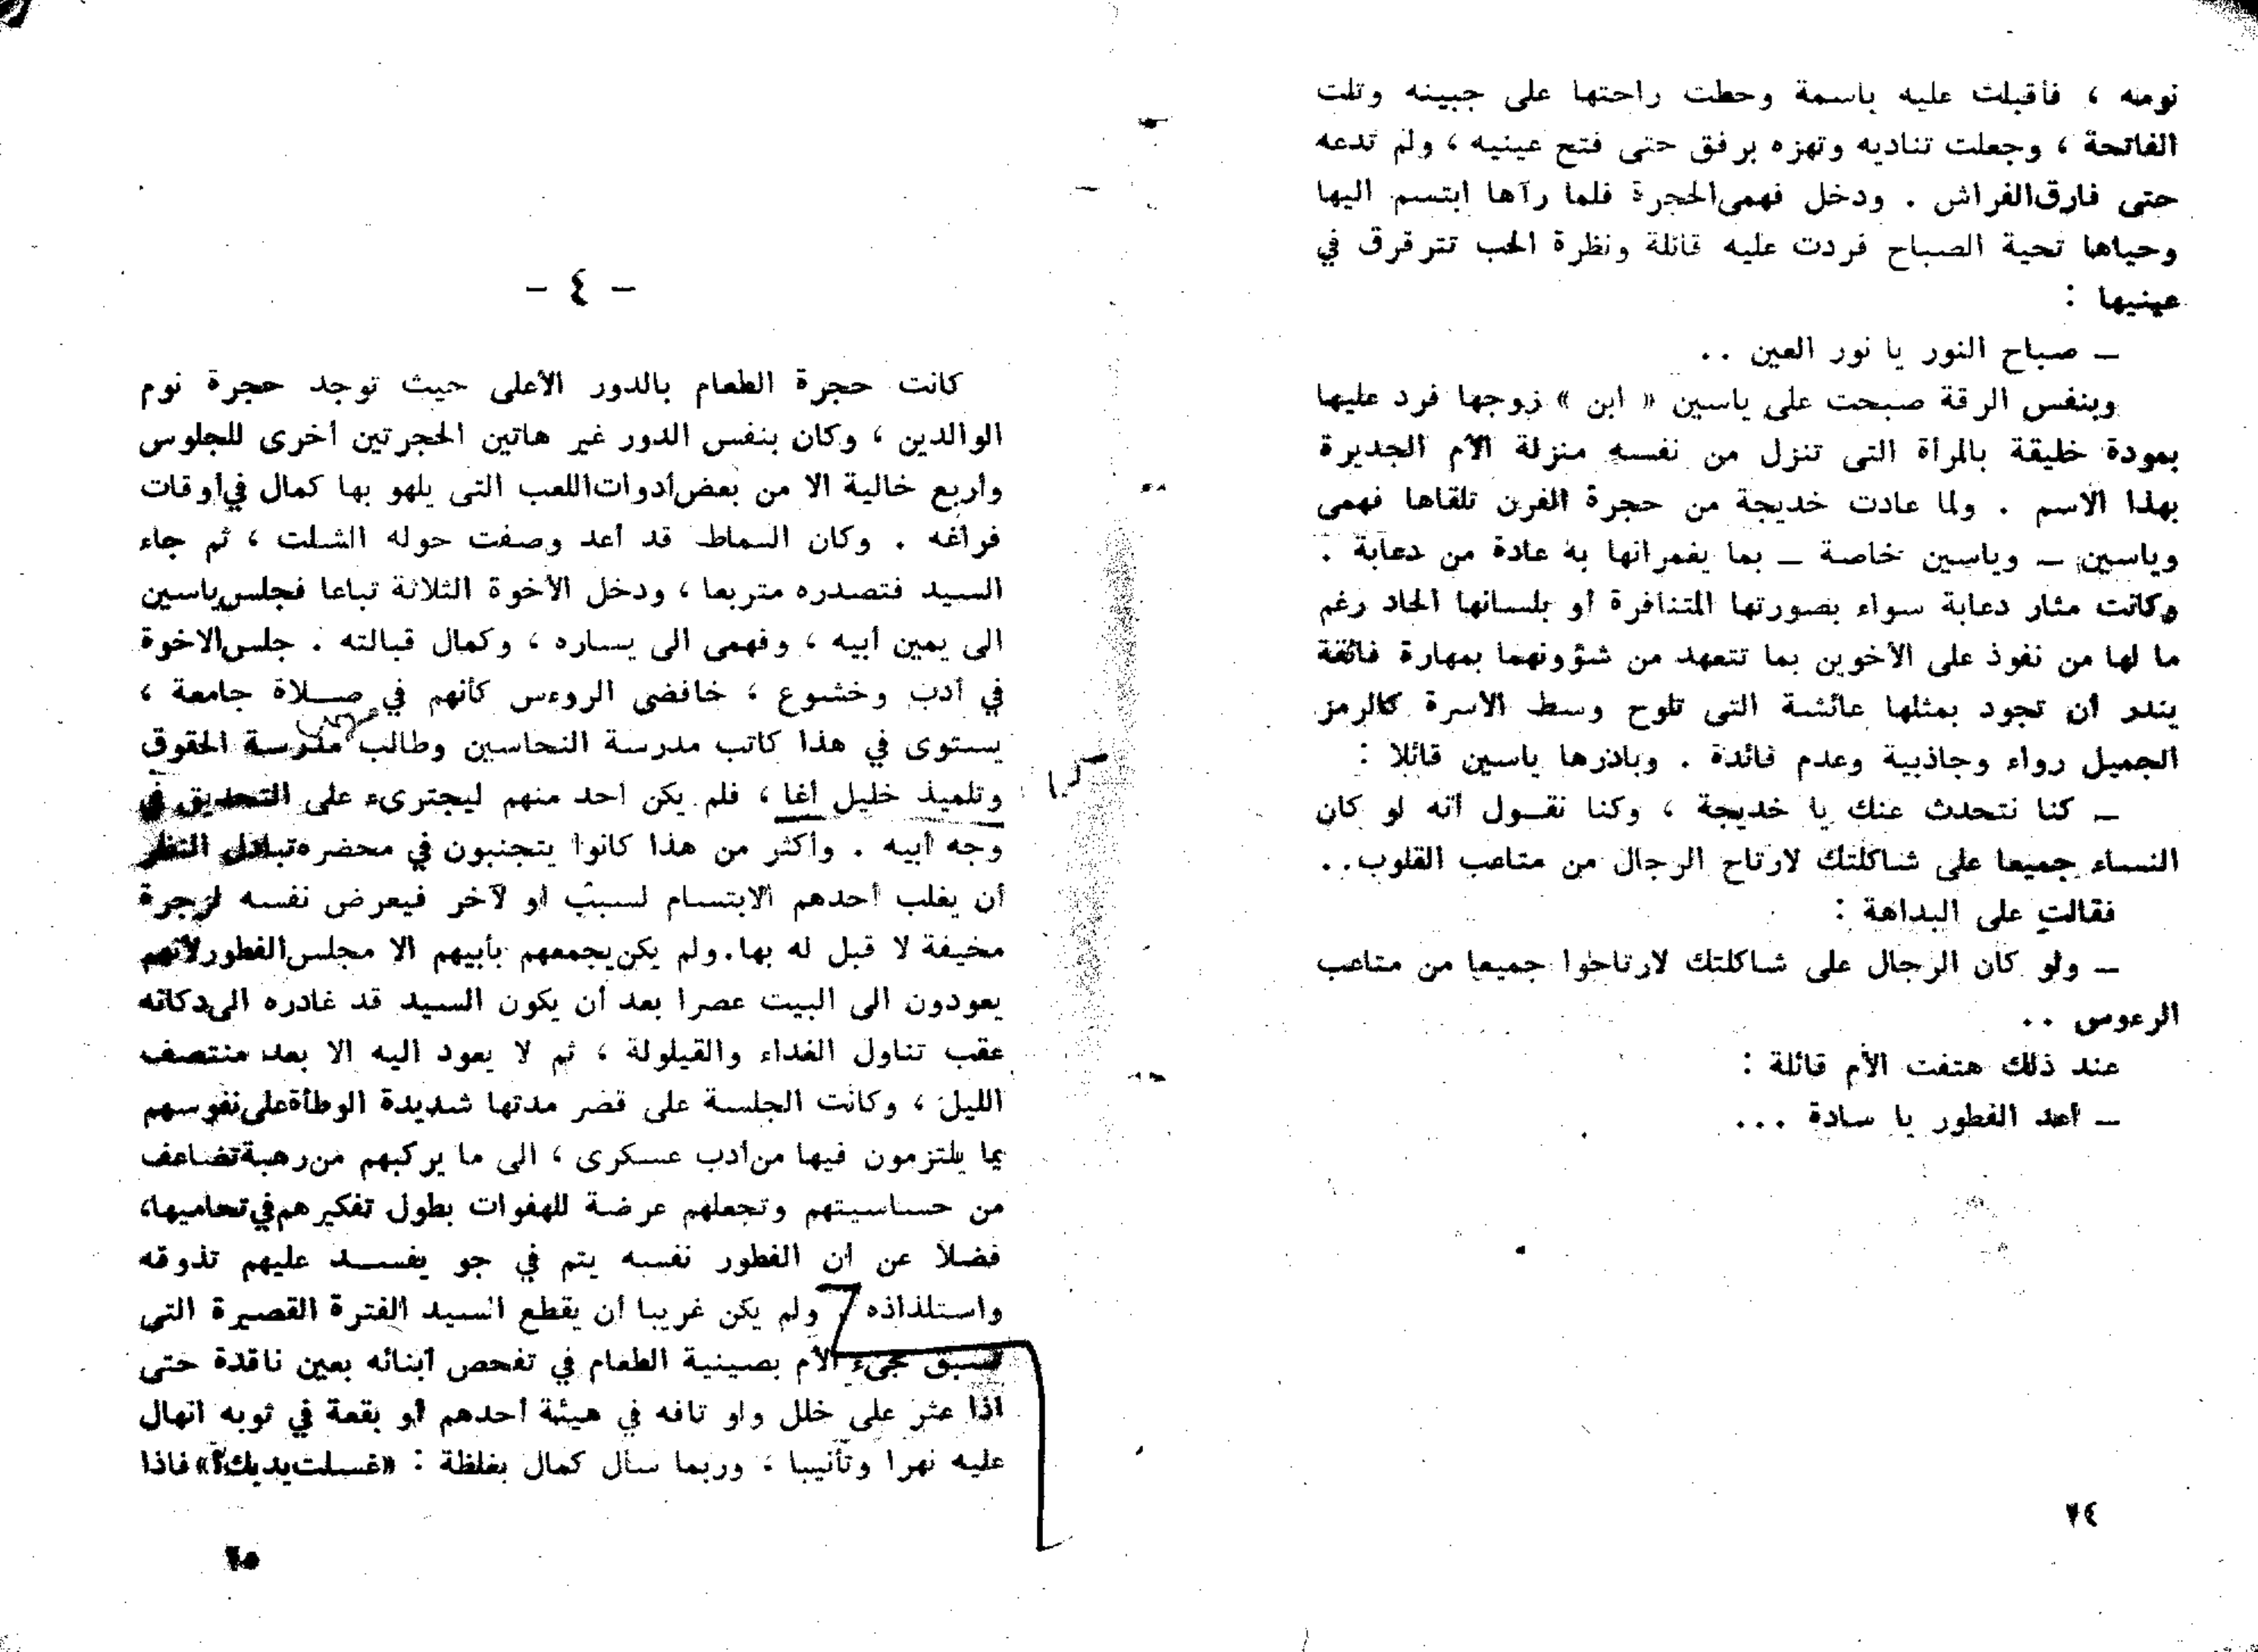 نومه ، فأقبلت عليه باسمة وحطت راحتها على جبينه وتلت
الفاتحة ، وجعلت تناديه وتهزه برفق حتى فتح عينيه ، ولم تدعه
حتى فارق الفراش . ودخل فهمى الحجرة فلما رآها ابتسم اليها
وحياها تحية الصباح فردت عليه قائلة ونظرة الحب تترقرق في
عينيها :
ــ صباح النور يا نور العين ..
وبنفس الرقة صبحت على ياسين « ابن » زوجها فرد عليها
بمودة خليقة بالمرأة التى تنزل من نفسه منزلة الأم الجديرة
بهذا الاسم . ولما عادت خديجة من حجرة الفرن تلقاها فهمى
وياسين ــ وياسين خاصة ــ بما يغمرانها به عادة من دعابة .
وكانت مثار دعابة سواء بصورتها المتنافرة أو بلسانها الحاد رغم
ما لها من نفوذ على الأخوين بما تتعهد من شؤونهما بمهارة فائقة
يندر أن تجود بمثلها عائشة التى تلوح وسط الأسرة كالرمز
الجميل رواء وجاذبية وعدم فائدة . وبادرها ياسين قائلا :
ــ كنا نتحدث عنك يا خديجة ، وكنا نقـول أنه لو كان
النساء جميعا على شاكلتك لارتاح الرجال من متاعب القلوب..
فقالت على البداهة :
ــ ولو كان الرجال على شاكلتك لارتاحوا جميعا من متاعب
الرءوس ..
عند ذلك هتفت الأم قائلة :
ــ أعد الفطور يا سادة ...
٢٤
- ٤ -
كانت حجرة الطعام بالدور الأعلى حيث توجد حجرة نوم
الوالدين ، وكان بنفس الدور غير هاتين الحجرتين أخرى للجلوس
وأربع خالية الا من بعض أدوات اللعب التى يلهو بها كمال في أوقات
فراغه . وكان السماط قد أعد وصفت حوله الشلت ، ثم جاء
السيد فتصدره متربعا ، ودخل الأخوة الثلاثة تباعا فجلس ياسين
الى يمين أبيه ، وفهمى الى يساره ، وكمال قبالته . جلس الاخوة
في أدب وخشوع ، خافضى الروءس كأنهم في صــلاة جامعة ،
يستوى في هذا كاتب مدرسة النحاسين وطالب مدرسة الحقوق
وتلميذ خليل أغا ، فلم يكن أحد منهم ليجترىء على التحديق في
وجه أبيه . وأكثر من هذا كانوا يتجنبون في محضره تبادل النظر
أن يغلب أحدهم الابتسام لسبب أو لآخر فيعرض نفسه لزجرة
مخيفة لا قبل له بها. ولم يكن يجمعهم بأبيهم الا مجلس الفطور لأنهم
يعودون الى البيت عصرا بعد أن يكون السيد قد غادره الى دكانه
عقب تناول الغداء والقيلولة ، ثم لا يعود اليه الا بعد منتصف
الليل ، وكانت الجلسة على قصر مدتها شديدة الوطأة على نفوسهم
بما يلتزمون فيها من أدب عسكرى ، الى ما يركبهم من رهبة تضاعف
من حساسيتهم وتجعلهم عرضة للهفوات بطول تفكيرهم في تحاميها،
فضلا عن أن الفطور نفسه يتم في جو يفســد عليهم تذوقه
واستلذاذه . ولم يكن غريبا أن يقطع السيد الفترة القصيرة التى
تسبق مجىء الأم بصينية الطعام في تفحص أبنائه بعين ناقدة حتى
اذا عثر على خلل ولو تافه في هيئة أحدهم أو بقعة في ثوبه انهال
عليه نهرا وتأنيبا ، وربما سأل كمال بغلظة : «غسلت يديك؟» فاذا
٢٥